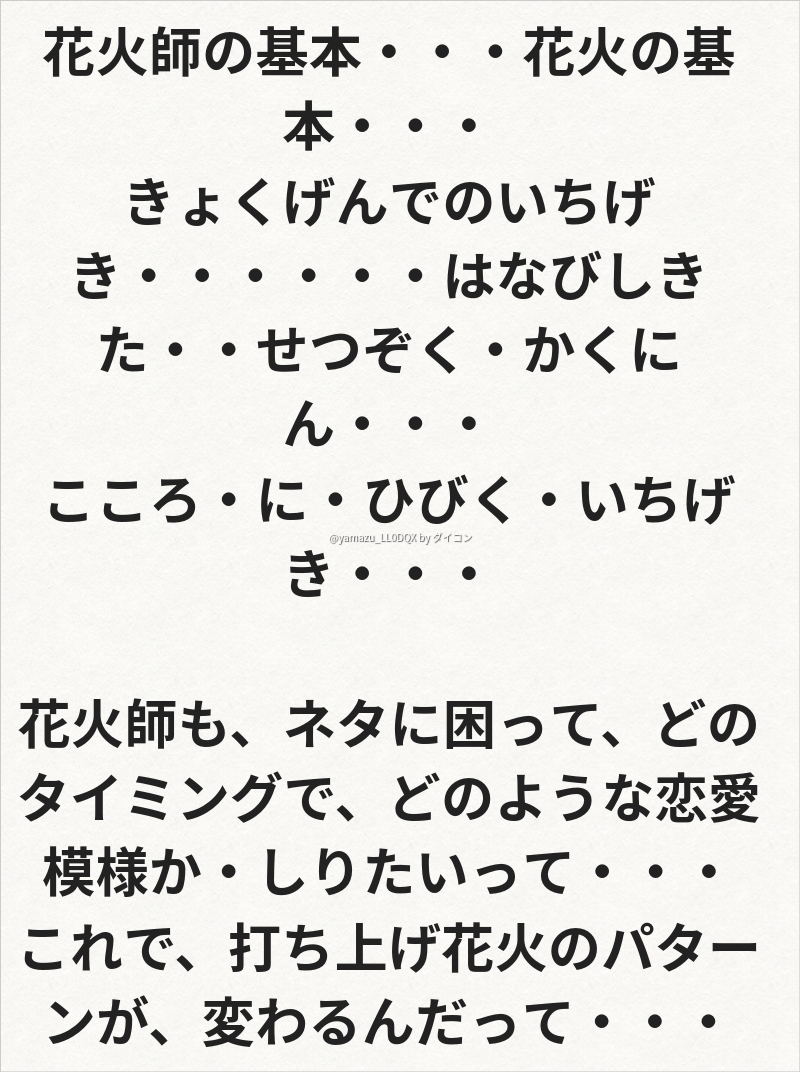 花火師の基本・・・花火の基
本・・・
きょくげんでのいちげ
き・・・・・・はなびしき
た・・せつぞく・かくに
ん・・・
こころ・に・ひびく・いちげ
@yamazu_LL0DQX by ダイコン
き・・・
花火師も、ネタに困って、どの
タイミングで、どのような恋愛
模様か・しりたいって・・・
これで、打ち上げ花火のパター
ンが、変わるんだって・・・